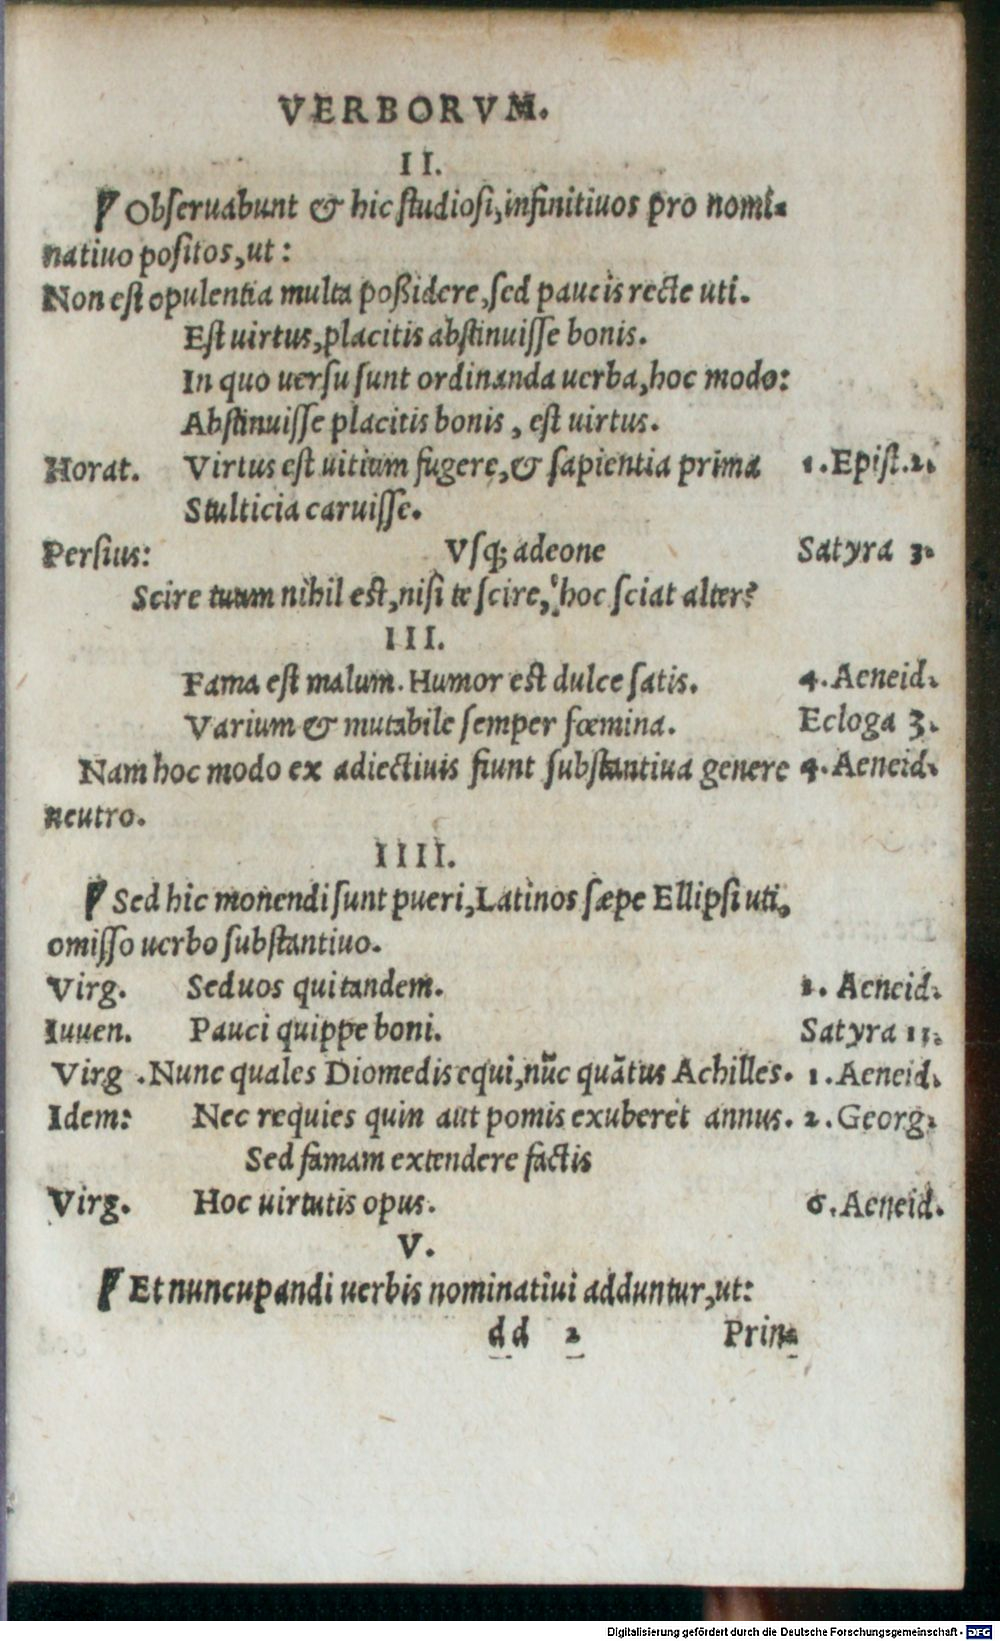 VERBORVM.
II.
¶ Obseruabunt & hic studiosi, infinitiuos pro nomi-
natiuo positos, ut:
Non est opulentia multa poßidere, sed paucis recte uti.
Est uirtus, placitis abstinuisse bonis.
In quo uersu sunt ordinanda uerba, hoc modo:
Abstinuisse placitis bonis, est uirtus.
Horat. Virtus est uitium fugere, & sapientia prima 1. Epist. 2.
Stulticia caruisse.
Persius: Vsq; adeone Satyra 3.
Scire tuum nihil est, nisi te scire, hoc sciat alter?
III.
Fama est malum. Humor est dulce satis. 4. Aeneid.
Varium & mutabile semper fœmina. Ecloga 3.
Nam hoc modo ex adiectiuis fiunt substantiua genere 4. Aeneid.
neutro.
IIII.
¶ Sed hic monendi sunt pueri, Latinos sæpe Ellipsi uti,
omisso uerbo substantiuo.
Virg. Sed uos qui tandem. 1. Aeneid.
Iuuen. Pauci quippe boni. Satyra 13.
Virg. Nunc quales Diomedis equi, nũc quãtus Achilles. 1. Aeneid.
Idem: Nec requies quin aut pomis exuberet annus. 2. Georg.
Sed famam extendere factis
Virg. Hoc uirtutis opus. 6. Aeneid.
V.
¶ Et nuncupandi uerbis nominatiui adduntur, ut:
dd 2 Prin-
Digitalisierung gefördert durch die Deutsche Forschungsgemeinschaft - DFG